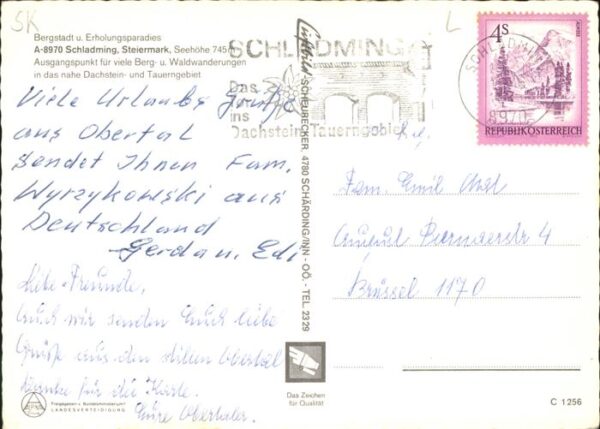 SK
L
Bergstadt u. Erholungsparadies
A-8970 Schladming, Steiermark, Seehöhe 745
Ausgangspunkt für viele Berg- u. Waldwanderungen
in das nahe Dachstein- und Tauerngebiet
SCHLADMING
Das
ins
Dachstein Tauerngebiet
SCHLADMING
8970
4 S
REPUBLIK ÖSTERREICH
Viele Urlaubs
aus Obertal
sendet Ihnen Fam.
Wyrzykowski aus
Deutschland
Gerda u. Edi
Liebe Freunde,
Auch wir senden Euch liebe
Grüße aus dem stillen Obertal
Danke für die Karte.
Eure Obertaler.
SCHEURECKER, 4780 SCHÄRDING/INN - OÖ. - TEL. 2329
Fam. Emil
4
Brüssel 1170
Das Zeichen
für Qualität
Freigegeben v. Bundesministerium f.
LANDESVERTEIDIGUNG
C 1256